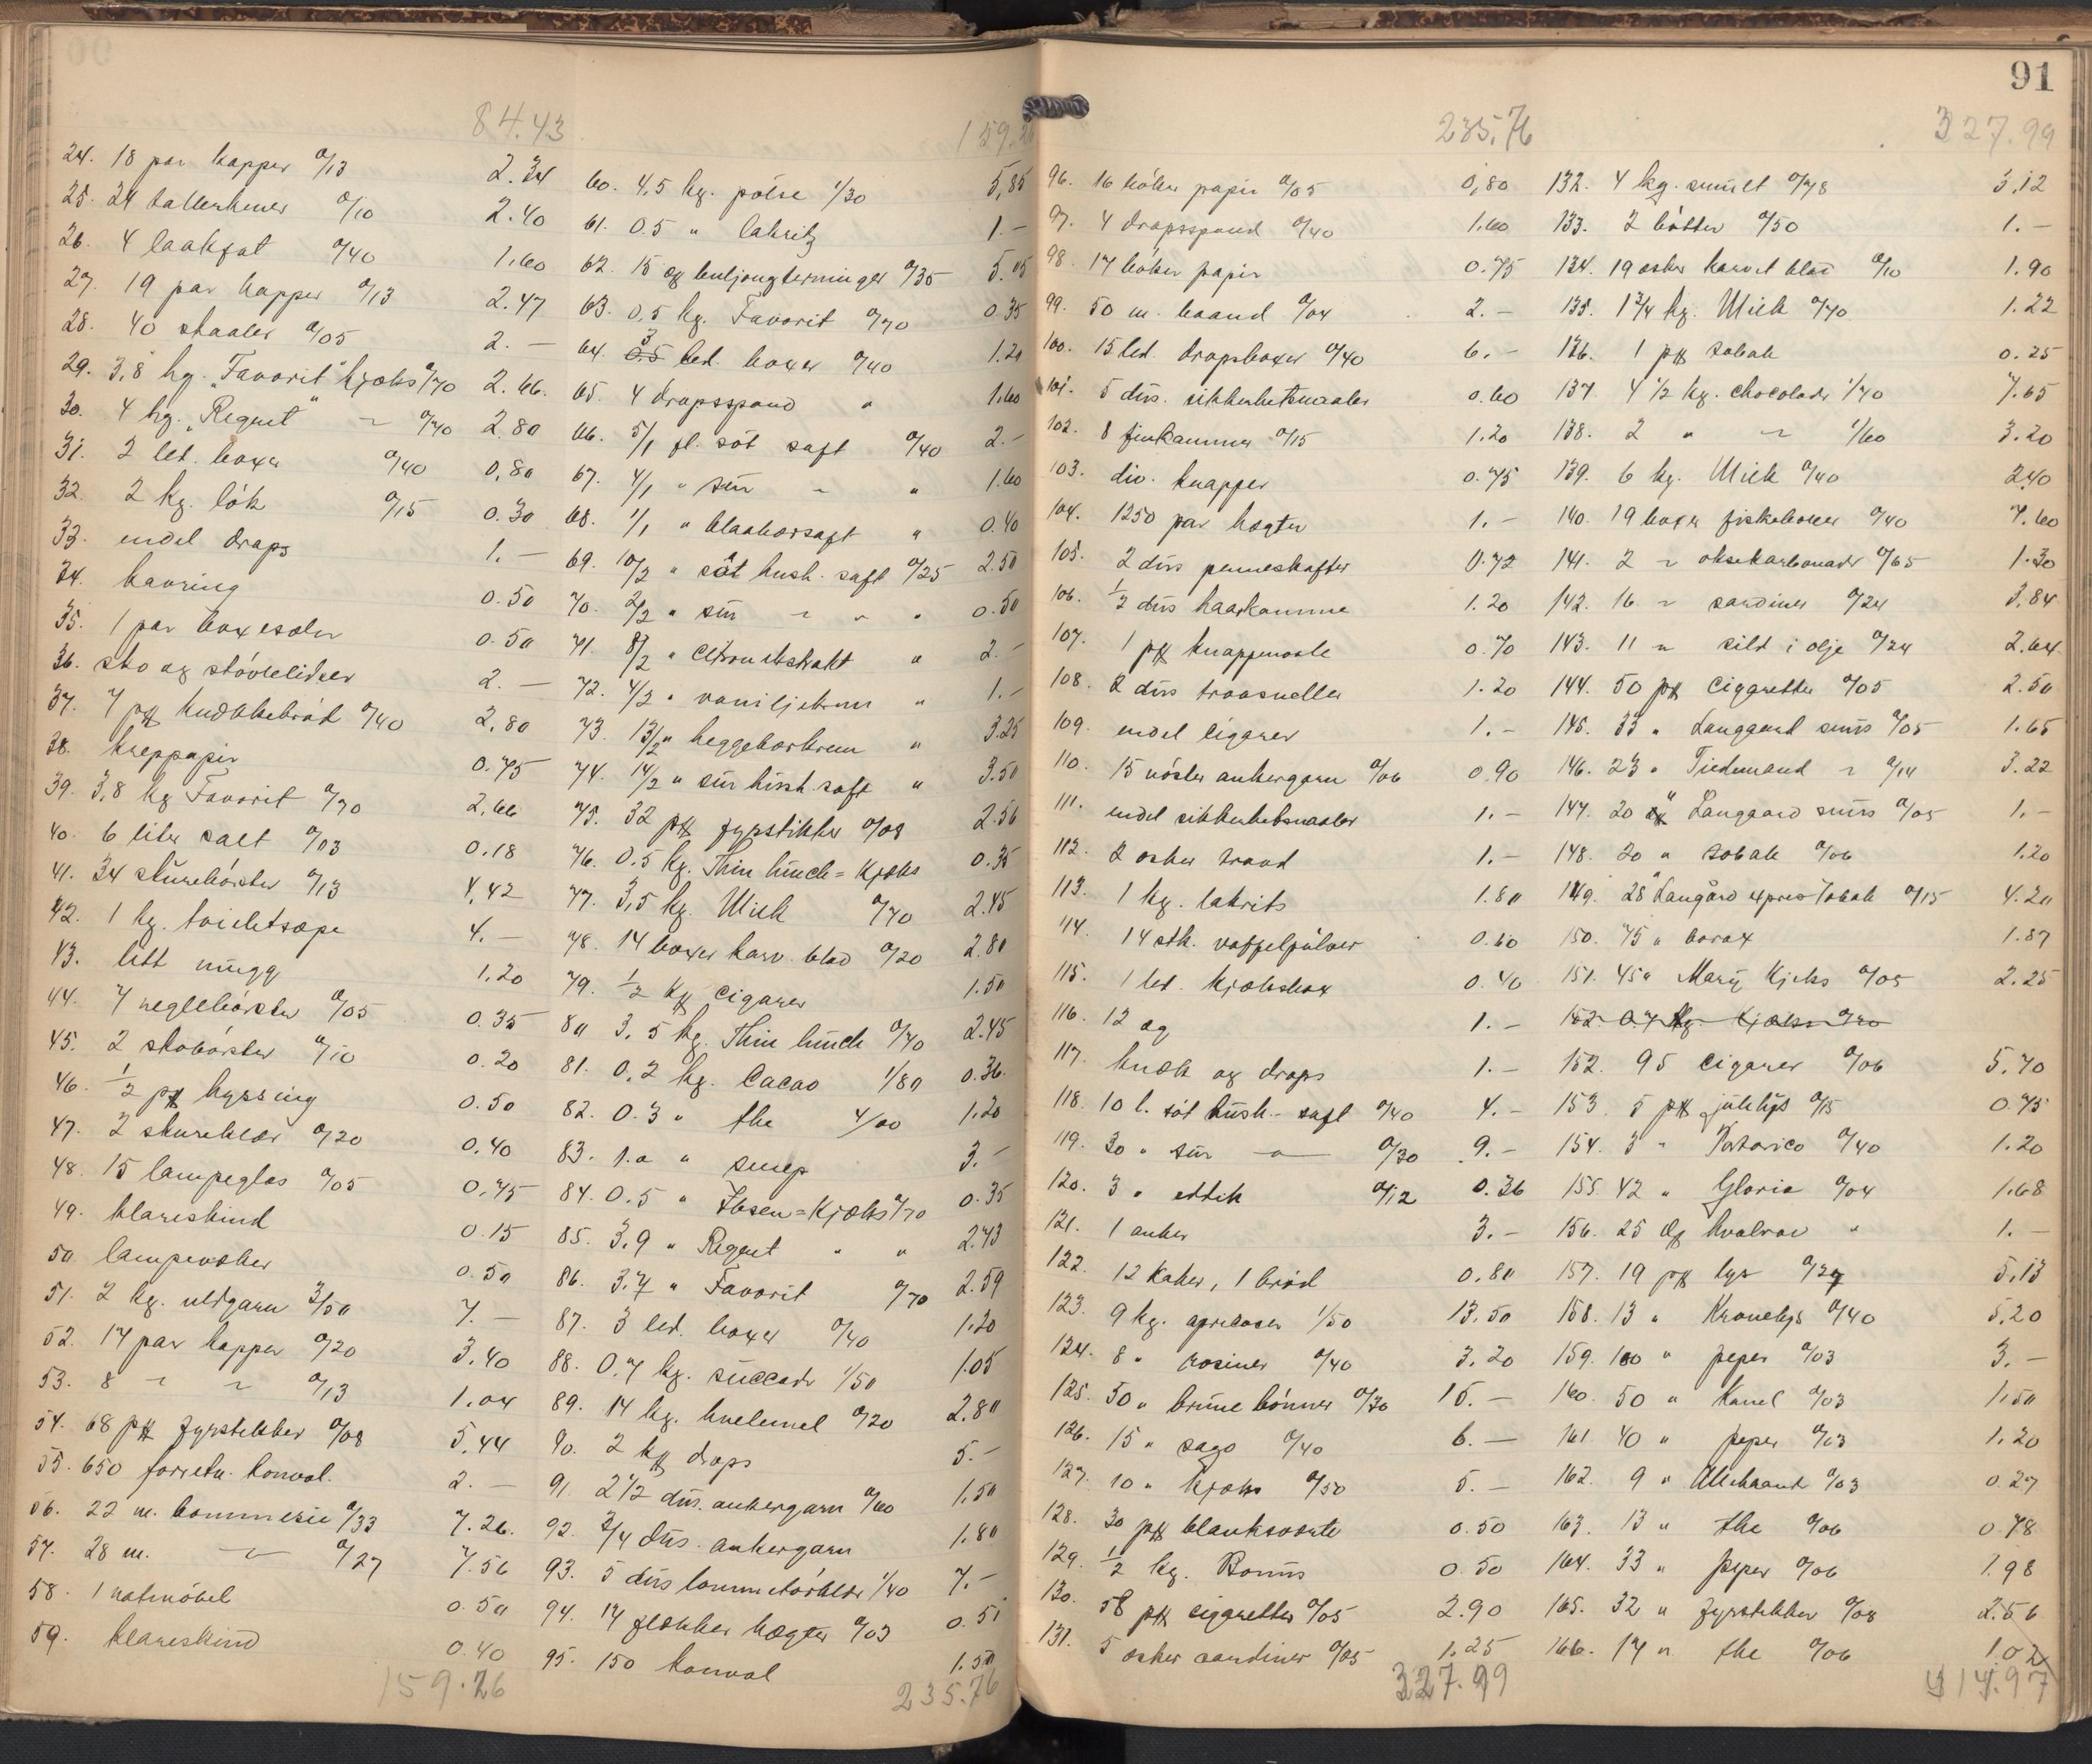 84.43
24. 18 par kopper a/13 2.34
25. 24 tallerkener a/10 2.40
26. 4 laakfat a/40 1.60
27. 19 par kopper a/13 2.47
28. 40 skaaler a/05 2.—
29. 3,8 kg. „Favorit" kjæks a/70 2.66.
30. 4 kg. „Regent" — a/70 2.80
31. 2 led. boxer a/40 0,80
32. 2 kg. lök a/15 0.30
33. endel drops 1.—
34. kavring 0.50
35. 1 par boxesæler 0.50
36. sko og stövlelidser 2.—
37. 7 pk knækkebröd a/40 2.80
38. kreppapir 0.75
39. 3,8 kg Favorit a/70 2,66
40. 6 liter salt a/03 0.18
41. 34 skurebörster a/13 4,42
42. 1 kg. toiletsæpe 4.—
43. litt mugg 1.20
44. 7 neglebörster a/05 0.35
45. 2 skobörster a/10 0.20
46. ½ pk hyssing 0.50
47. 2 skureklær a/20 0.40
48. 15 lampeglas a/05 0.75
49. klareskind 0.15
50 lampevæker 0.50
51. 2 kg. uldgarn 3/50 7.—
52. 17 par kopper a/20 3.40
53. 8 — — a/13 1.04
54. 68 pk fyrstikker a/08 5.44
55. 650 konvol. 2.—
56. 22 m. a/33 7.26.
57. 28 m. — a/27 7.56
58. 1 0.50
59. klareskind 0.40
159.26
159.26
60. 4,5 kg. pölse 1/30 5,85
61. 0.5 " lakritz 1.—
62. 15 æg buljongterninger a/35
63. 0,5 kg. Favorit a/70 0.35
64. 3 led. boxer a/40 1.20
65. 4 dropsspand " 1.60
66. 5/1 fl. söt saft a/40 2.—
67. 4/1 " sur — " 1.60
68. 1/1 " blaabærsaft " 0.40
69. 10/2 " söt hush. saft a/25 2.50
70. 2/2 " sur — " " 0.50
71. 8/2 " Citronekstrakt " 2.—
72. 4/2 " vaniljekrem " 1.—
73. 13/2 " heggebærkrem " 3.25
74. 14/2 " sur hush. saft " 3.50
75. 32 pk fyrstikker a/08 2.56
76. 0.5 kg. Thin lunch=kjæks 0.35
77. 3,5 kg. Mick a/70 2.45
78. 14 boxer karv. blad a/20 2.80
79. ½ kg cigarer 1.50
80 3,5 kg. Thin lunch a/70 2.45
81. 0,2 kg. Cacao 1/80 0.36.
82. 0.3 " the 4/00 1.20
83. 1.0 " senep 3.—
84. 0.5 " Ibsen=kjæks a/70 0.35
85. 3.9 " Regent " " 2.73
86. 3.7 " Favorit a/70 2.59
87. 3 led. boxer a/40 1.20
88. 0,7 kg. succade 1/50 1.05
89. 14 kg. hvetemel a/20 2.80
90. 2 kg drops 5.—
91 2½ dus. ankergarn a/60 1.50
92. 3/4 dus. ankergarn 1.80
93. 5 dus lommetörklær 1/40 7.—
94. 17 flekker hægter a/03 0.51
95. 150 konvol 1.50
235.76
91
235.76
96. 16 böker papir a/05 0,80
97. 4 dropsspand a/40 1.60
98. 17 böker papir 0.75
99. 50 m. baand a/04 2.—
100. 15 led. dropsboxer a/40 6.—
101. 5 dus. sikkerhetsnaaler 0.60
102. 8 finkammer a/15 1.20
103. div. knapper 0.75
104. 1250 par hægter 1.—
105. 2 dus penneskafter 0.72
106. ½ dus haarkamme 1.20
107. 1 pk knappenaale 0.70
108. 2 dus traasneller 1.20
109. endel cigarer 1.—
110. 15 nöster ankergarn a/06 0.90
111. endel sikkerhetsnaaler 1.—
112. 2 esker traad 1.—
113. 1 kg. lakrits 1.80
114. 14 stk. vaffelpulver 0.60
115. 1 led. kjæksbox 0.40
116. 12 æg 1.—
117. knæk og drops 1.—
118. 10 l. söt hush- saft a/40 4.—
119. 30 " sur — a/30 9.—
120. 3 " eddik a/12 0.36
121. 1 anker 3.—
122. 12 kaker, 1 bröd 0.80
123. 9 kg. aprikoser 1/50 13.50
124. 8 " rosiner a/40 3.20
125. 50 " brune bönner a/30 15.—
126. 15 " sago a/40 6.—
127. 10 " kjæks a/50 5.—
128. 30 pk blanksværte 0.50
129. ½ kg. Bonus 0.50
130. 58 pk cigaretter a/05 2.90
131. 5 esker sardiner a/25 1.25
327.99
327.99
132. 4 kg. smult a/78 3.12
133. 2 bötter a/50 1.—
134. 19 esker karvet blad a/10 1.90
135. 1 3/4 kg. Mick a/70 1.22
136. 1 pk tobak 0.25
137. 4 1/2 kg. chocolade 1/70 7.65
138. 2 " — 1/60 3.20
139. 6 kg. Mick a/40 2.40
140. 19 boxer fiskeboller a/40 7.60
141. 2 — oksekarbonade a/65 1.30
142. 16 — sardiner a/24 3,84
143. 11 — sild i olje a/24 2.64
144. 50 pk cigaretter a/05 2.50
145. 33 " Langgaard snus a/05 1.65
146. 23 " Tiedemand — a/14 3.22
147. 20 " Langaard snus a/05 1.—
148. 20 " tobak a/06 1.20
149. 28 " Langård expres tobak a/15 4.20
150. 75 " borax 1.87
151. 45 " Mary kjeks a/05 2.25
152. 0.7 kg. kjæks a/70
152. 95 cigarer a/06 5.70
153. 5 pk julelys a/15 0.75
154. 3 " Portorico a/40 1.20
155. 42 " Gloria a/04 1.68
156. 25 æg hvalrav " 1.—
157. 19 pk lys a/27 5.13
158. 13 " Kronelys a/40 5.20
159. 100 " peper a/03 3.—
160. 50 " Kanel a/03 1.50
161 40 " peper a/03 1.20
162. 9 " Allehaande a/03 0.27
163. 13 " the a/06 0.78
164. 33 " peper a/06 1.98
165. 32 " fyrstikker a/08 2.56
166. 17 " the a/06 1.02
414.97